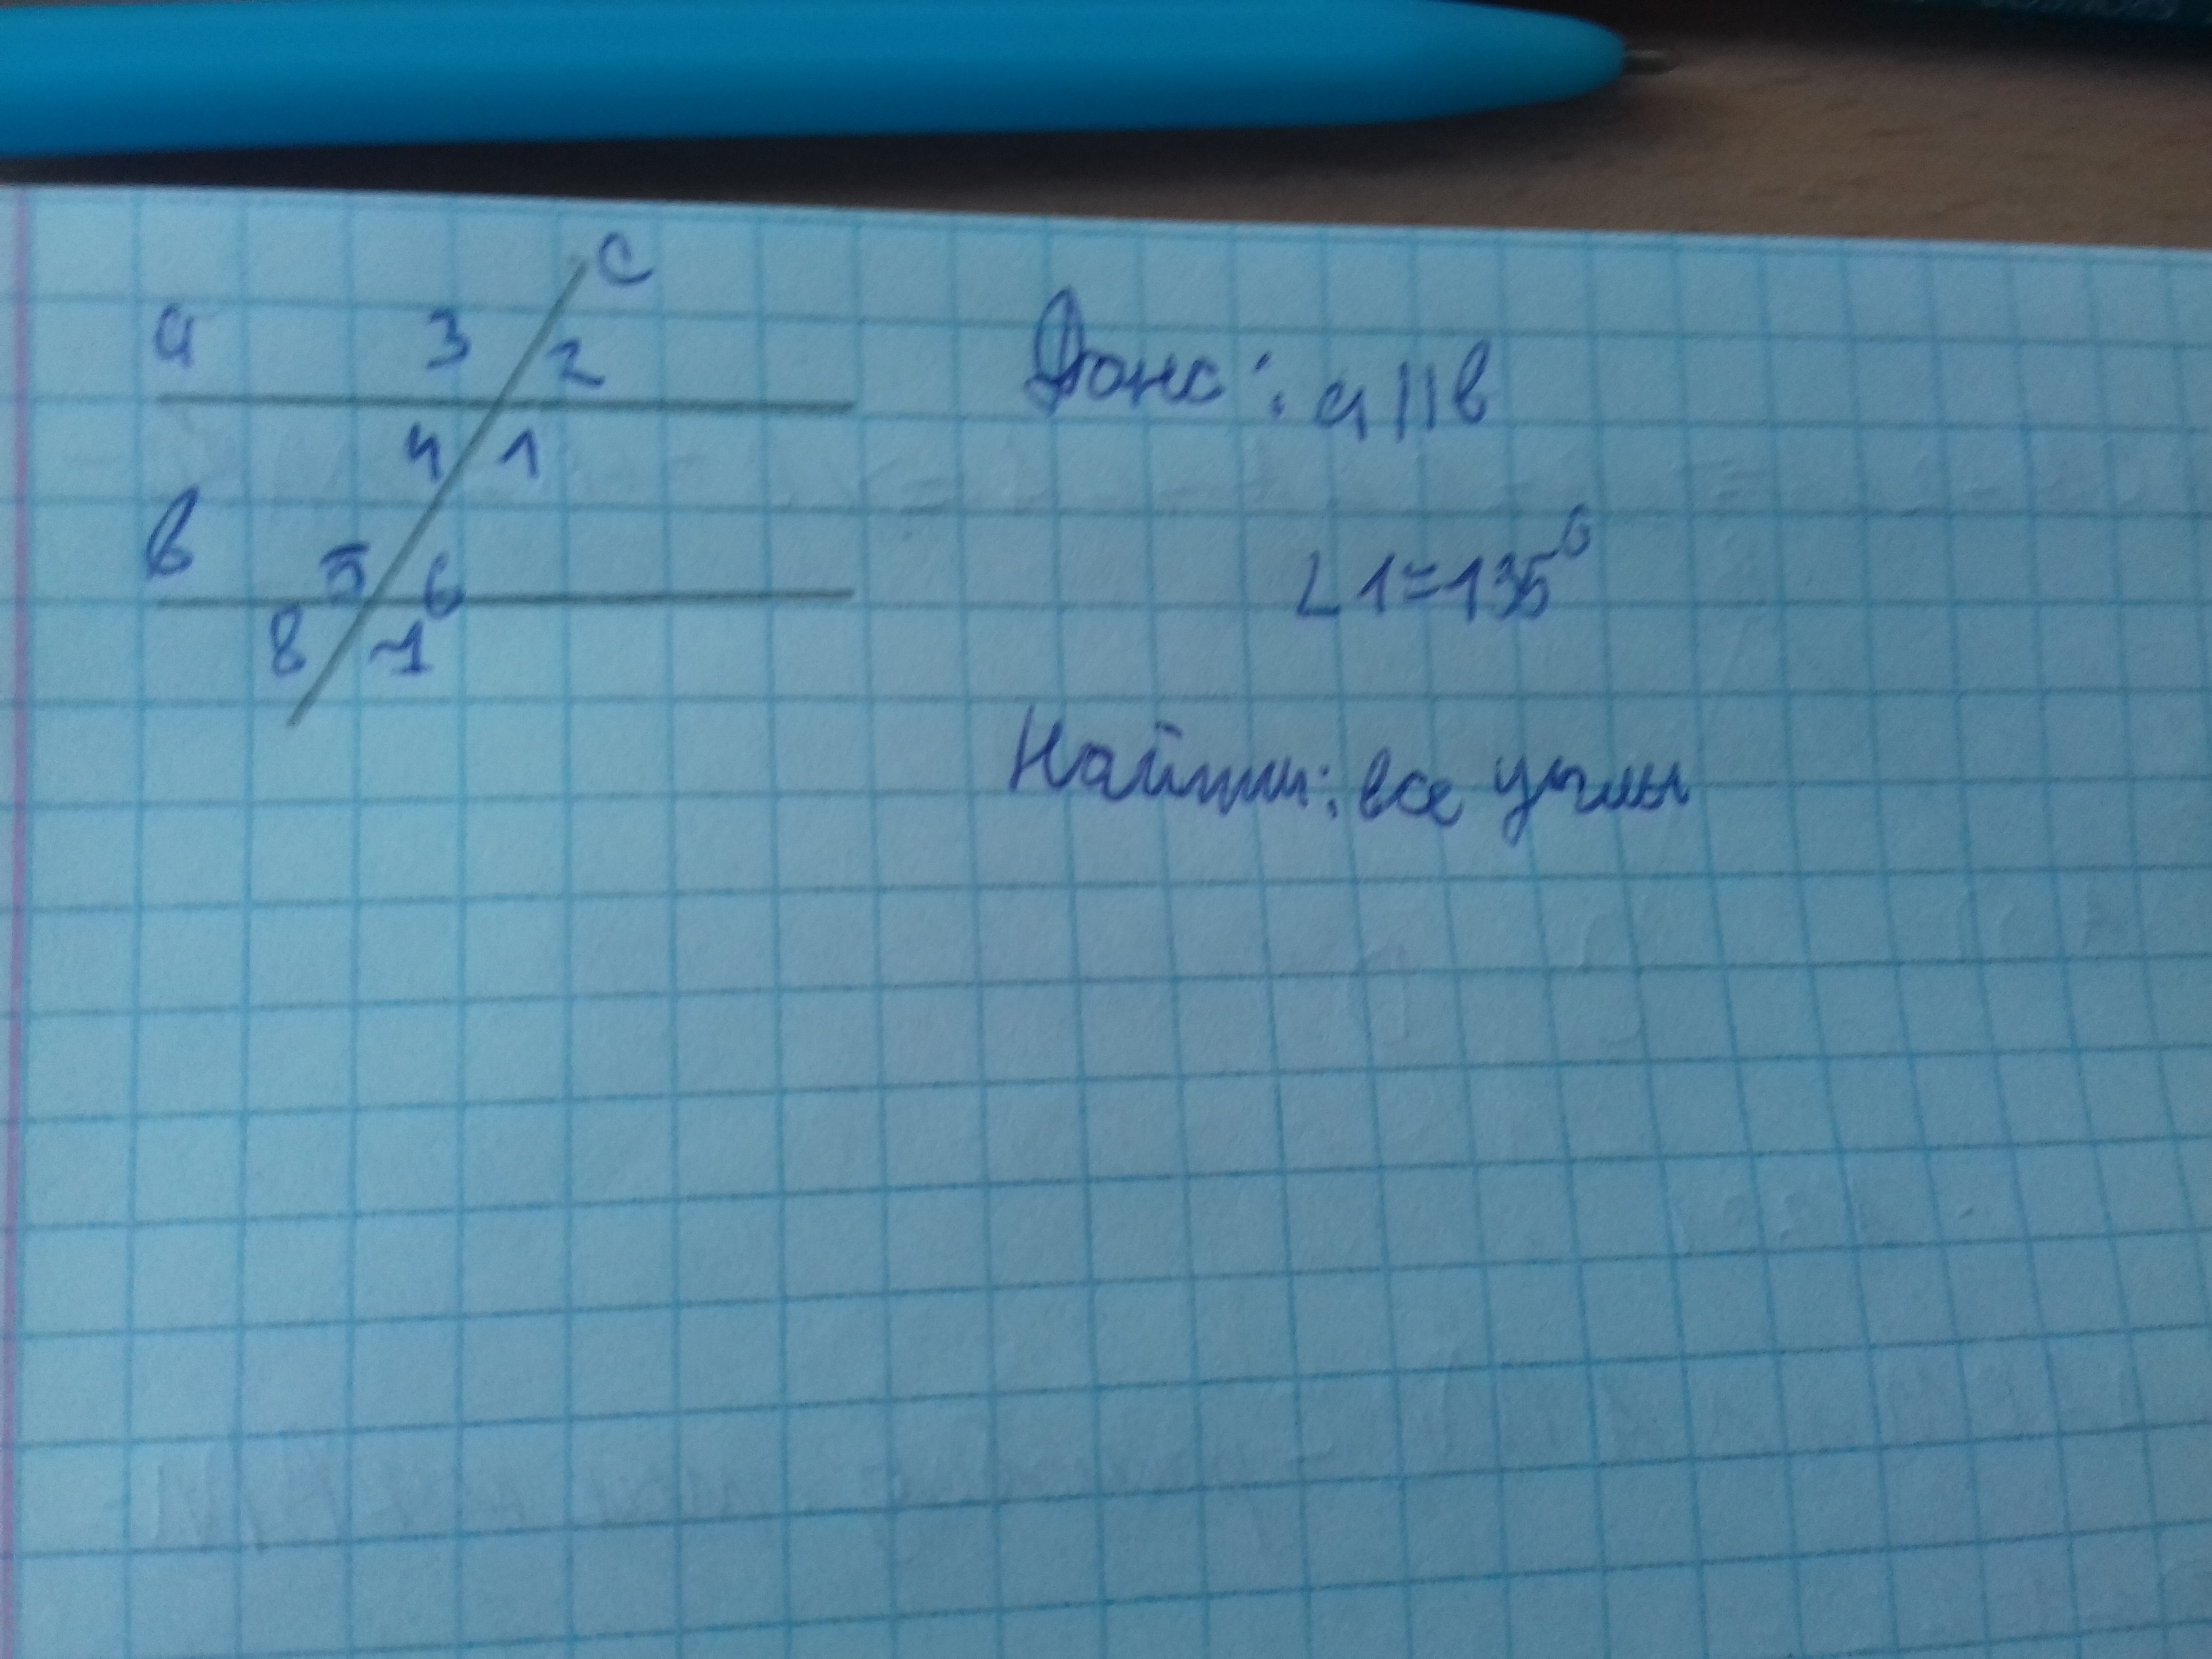 c
a 3 2
4 1
в
5 6
8 7
Дано: a || в
∠1=135°
Найти: все углы